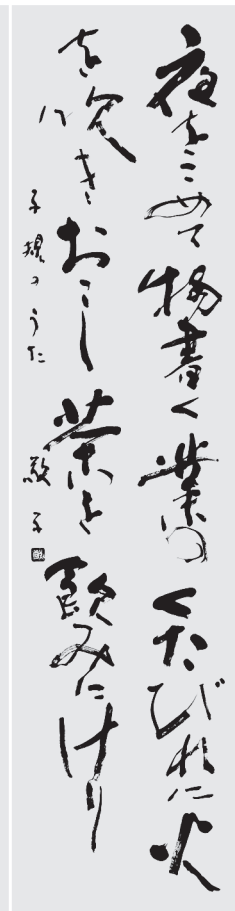 夜をこめて物書く業のくたびれに火
を吹きおこし茶を飲みにけり
子規のうた 敬子